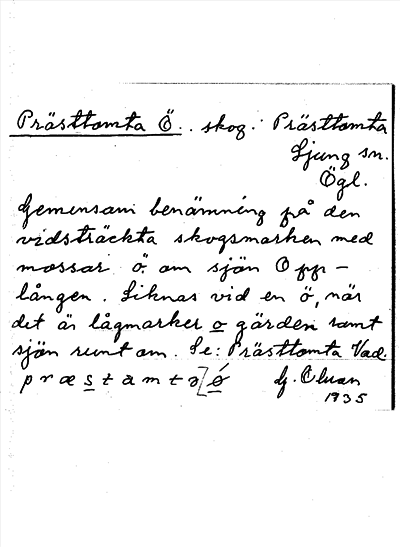 Prästtomta Ö. . skog. Prästtomta
Ljung sn.
Ögl.
Gemensam benämning på den
vidsträckta skogsmarken med
mossar ö. om sjön Opp-
lången. Liknas vid en ö, när
det är lågmarker o gärden samt
sjön runt om. Se: Prästtomta Vad.
p r æ s t a m t ə] ǿ G. Olson
1935